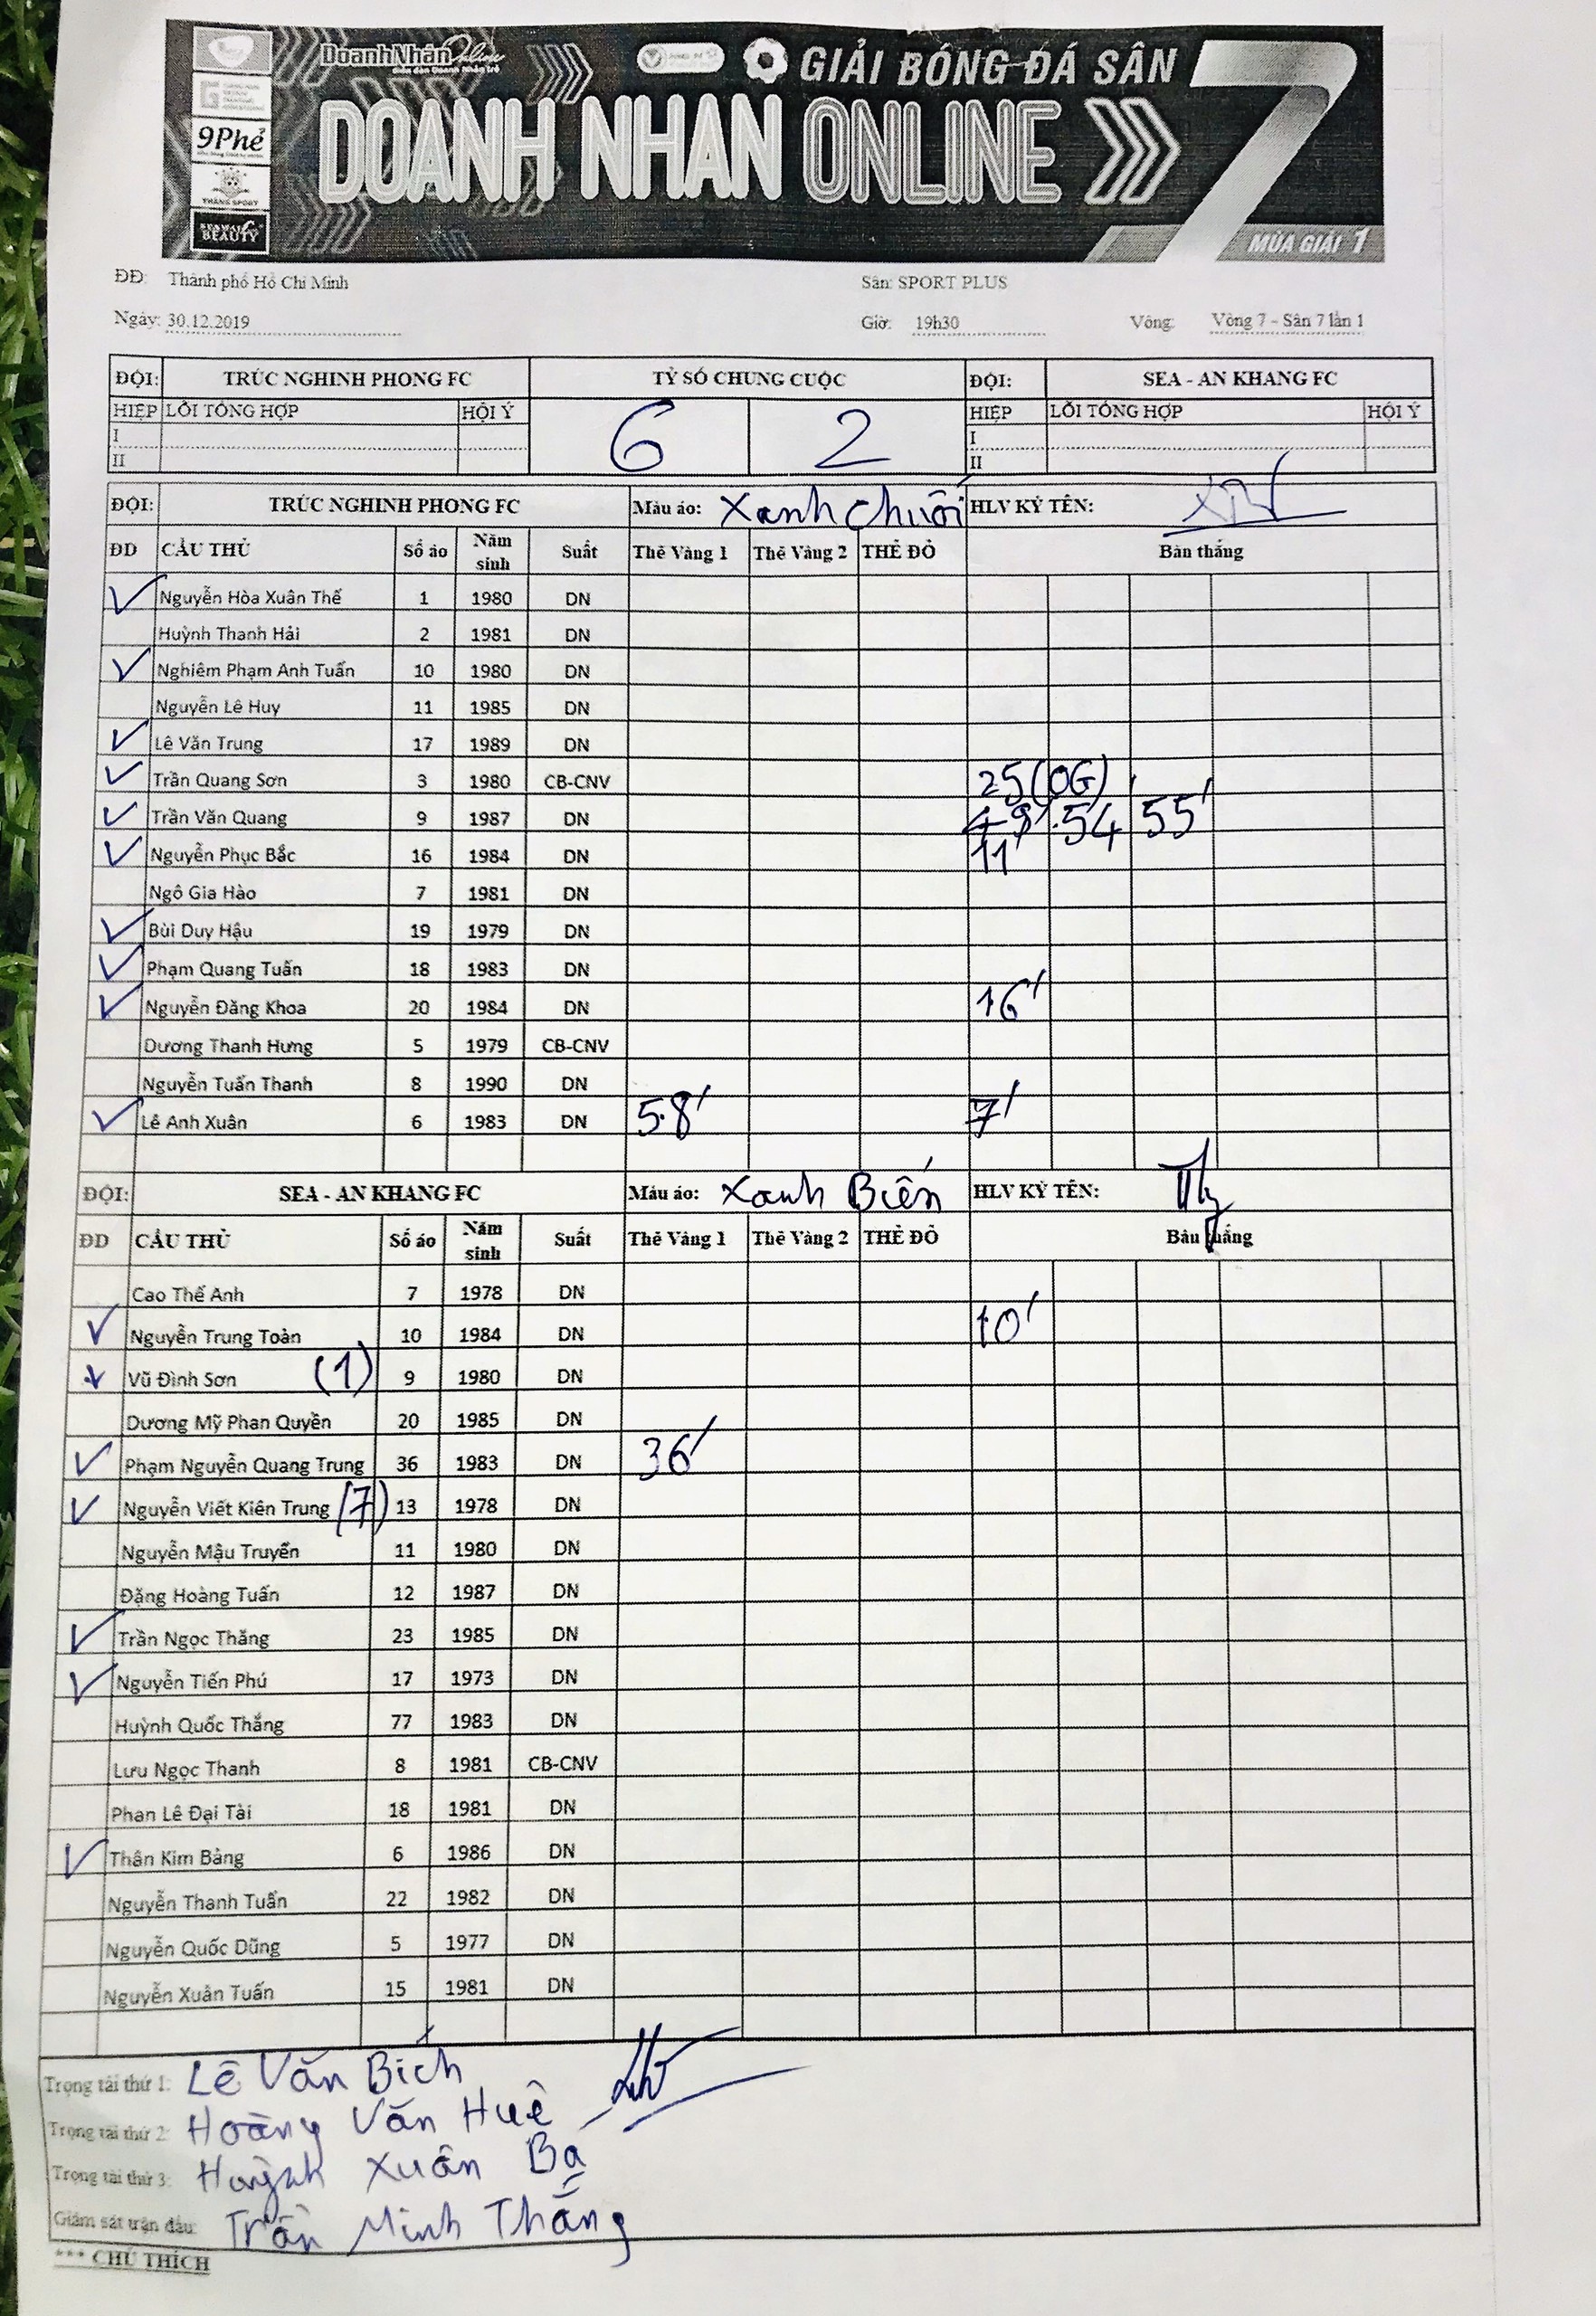 DoanhNhânOnline
Diễn đàn Doanh Nhân trẻ
GIẢI BÓNG ĐÁ SÂN 7
9Phẻ
THĂNG SPORT
BEAUTY
DOANH NHAN ONLINE
MÙA GIẢI 1
ĐĐ: Thành phố Hồ Chí Minh Sân: SPORT PLUS
Ngày: 30.12.2019 Giờ: 19h30 Vòng: Vòng 7 - Sân 7 lần 1
ĐỘI: TRÚC NGHINH PHONG FC TỶ SỐ CHUNG CUỘC ĐỘI: SEA - AN KHANG FC
HIỆP LỖI TỔNG HỢP HỘI Ý 6 2 HIỆP LỖI TỔNG HỢP HỘI Ý
I I
II II
ĐỘI: TRÚC NGHINH PHONG FC Màu áo: Xanh Chuối HLV KÝ TÊN:
ĐD CẦU THỦ Số áo Năm sinh Suất Thẻ Vàng 1 Thẻ Vàng 2 THẺ ĐỎ Bàn thắng
Nguyễn Hòa Xuân Thế 1 1980 DN
Huỳnh Thanh Hải 2 1981 DN
Nghiêm Phạm Anh Tuấn 10 1980 DN
Nguyễn Lê Huy 11 1985 DN
Lê Văn Trung 17 1989 DN
Trần Quang Sơn 3 1980 CB-CNV 25(OG)
Trần Văn Quang 9 1987 DN 49' 54' 55'
Nguyễn Phục Bắc 16 1984 DN 11'
Ngô Gia Hào 7 1981 DN
Bùi Duy Hậu 19 1979 DN
Phạm Quang Tuấn 18 1983 DN
Nguyễn Đăng Khoa 20 1984 DN 16'
Dương Thanh Hưng 5 1979 CB-CNV
Nguyễn Tuấn Thanh 8 1990 DN
Lê Anh Xuân 6 1983 DN 58' 7'
ĐỘI: SEA - AN KHANG FC Màu áo: Xanh Biển HLV KÝ TÊN:
ĐD CẦU THỦ Số áo Năm sinh Suất Thẻ Vàng 1 Thẻ Vàng 2 THẺ ĐỎ Bàn thắng
Cao Thế Anh 7 1978 DN
Nguyễn Trung Toàn 10 1984 DN 10'
Vũ Đình Sơn (1) 9 1980 DN
Dương Mỹ Phan Quyền 20 1985 DN
Phạm Nguyễn Quang Trung 36 1983 DN 36'
Nguyễn Viết Kiên Trung (7) 13 1978 DN
Nguyễn Mậu Truyền 11 1980 DN
Đặng Hoàng Tuấn 12 1987 DN
Trần Ngọc Thăng 23 1985 DN
Nguyễn Tiến Phú 17 1973 DN
Huỳnh Quốc Thắng 77 1983 DN
Lưu Ngọc Thanh 8 1981 CB-CNV
Phan Lê Đại Tài 18 1981 DN
Thân Kim Bảng 6 1986 DN
Nguyễn Thanh Tuấn 22 1982 DN
Nguyễn Quốc Dũng 5 1977 DN
Nguyễn Xuân Tuấn 15 1981 DN
Trọng tài thứ 1: Lê Văn Bích
Trọng tài thứ 2: Hoàng Văn Huê
Trọng tài thứ 3: Huỳnh Xuân Bạ
Giám sát trận đấu: Trần Minh Thắng
*** CHÚ THÍCH